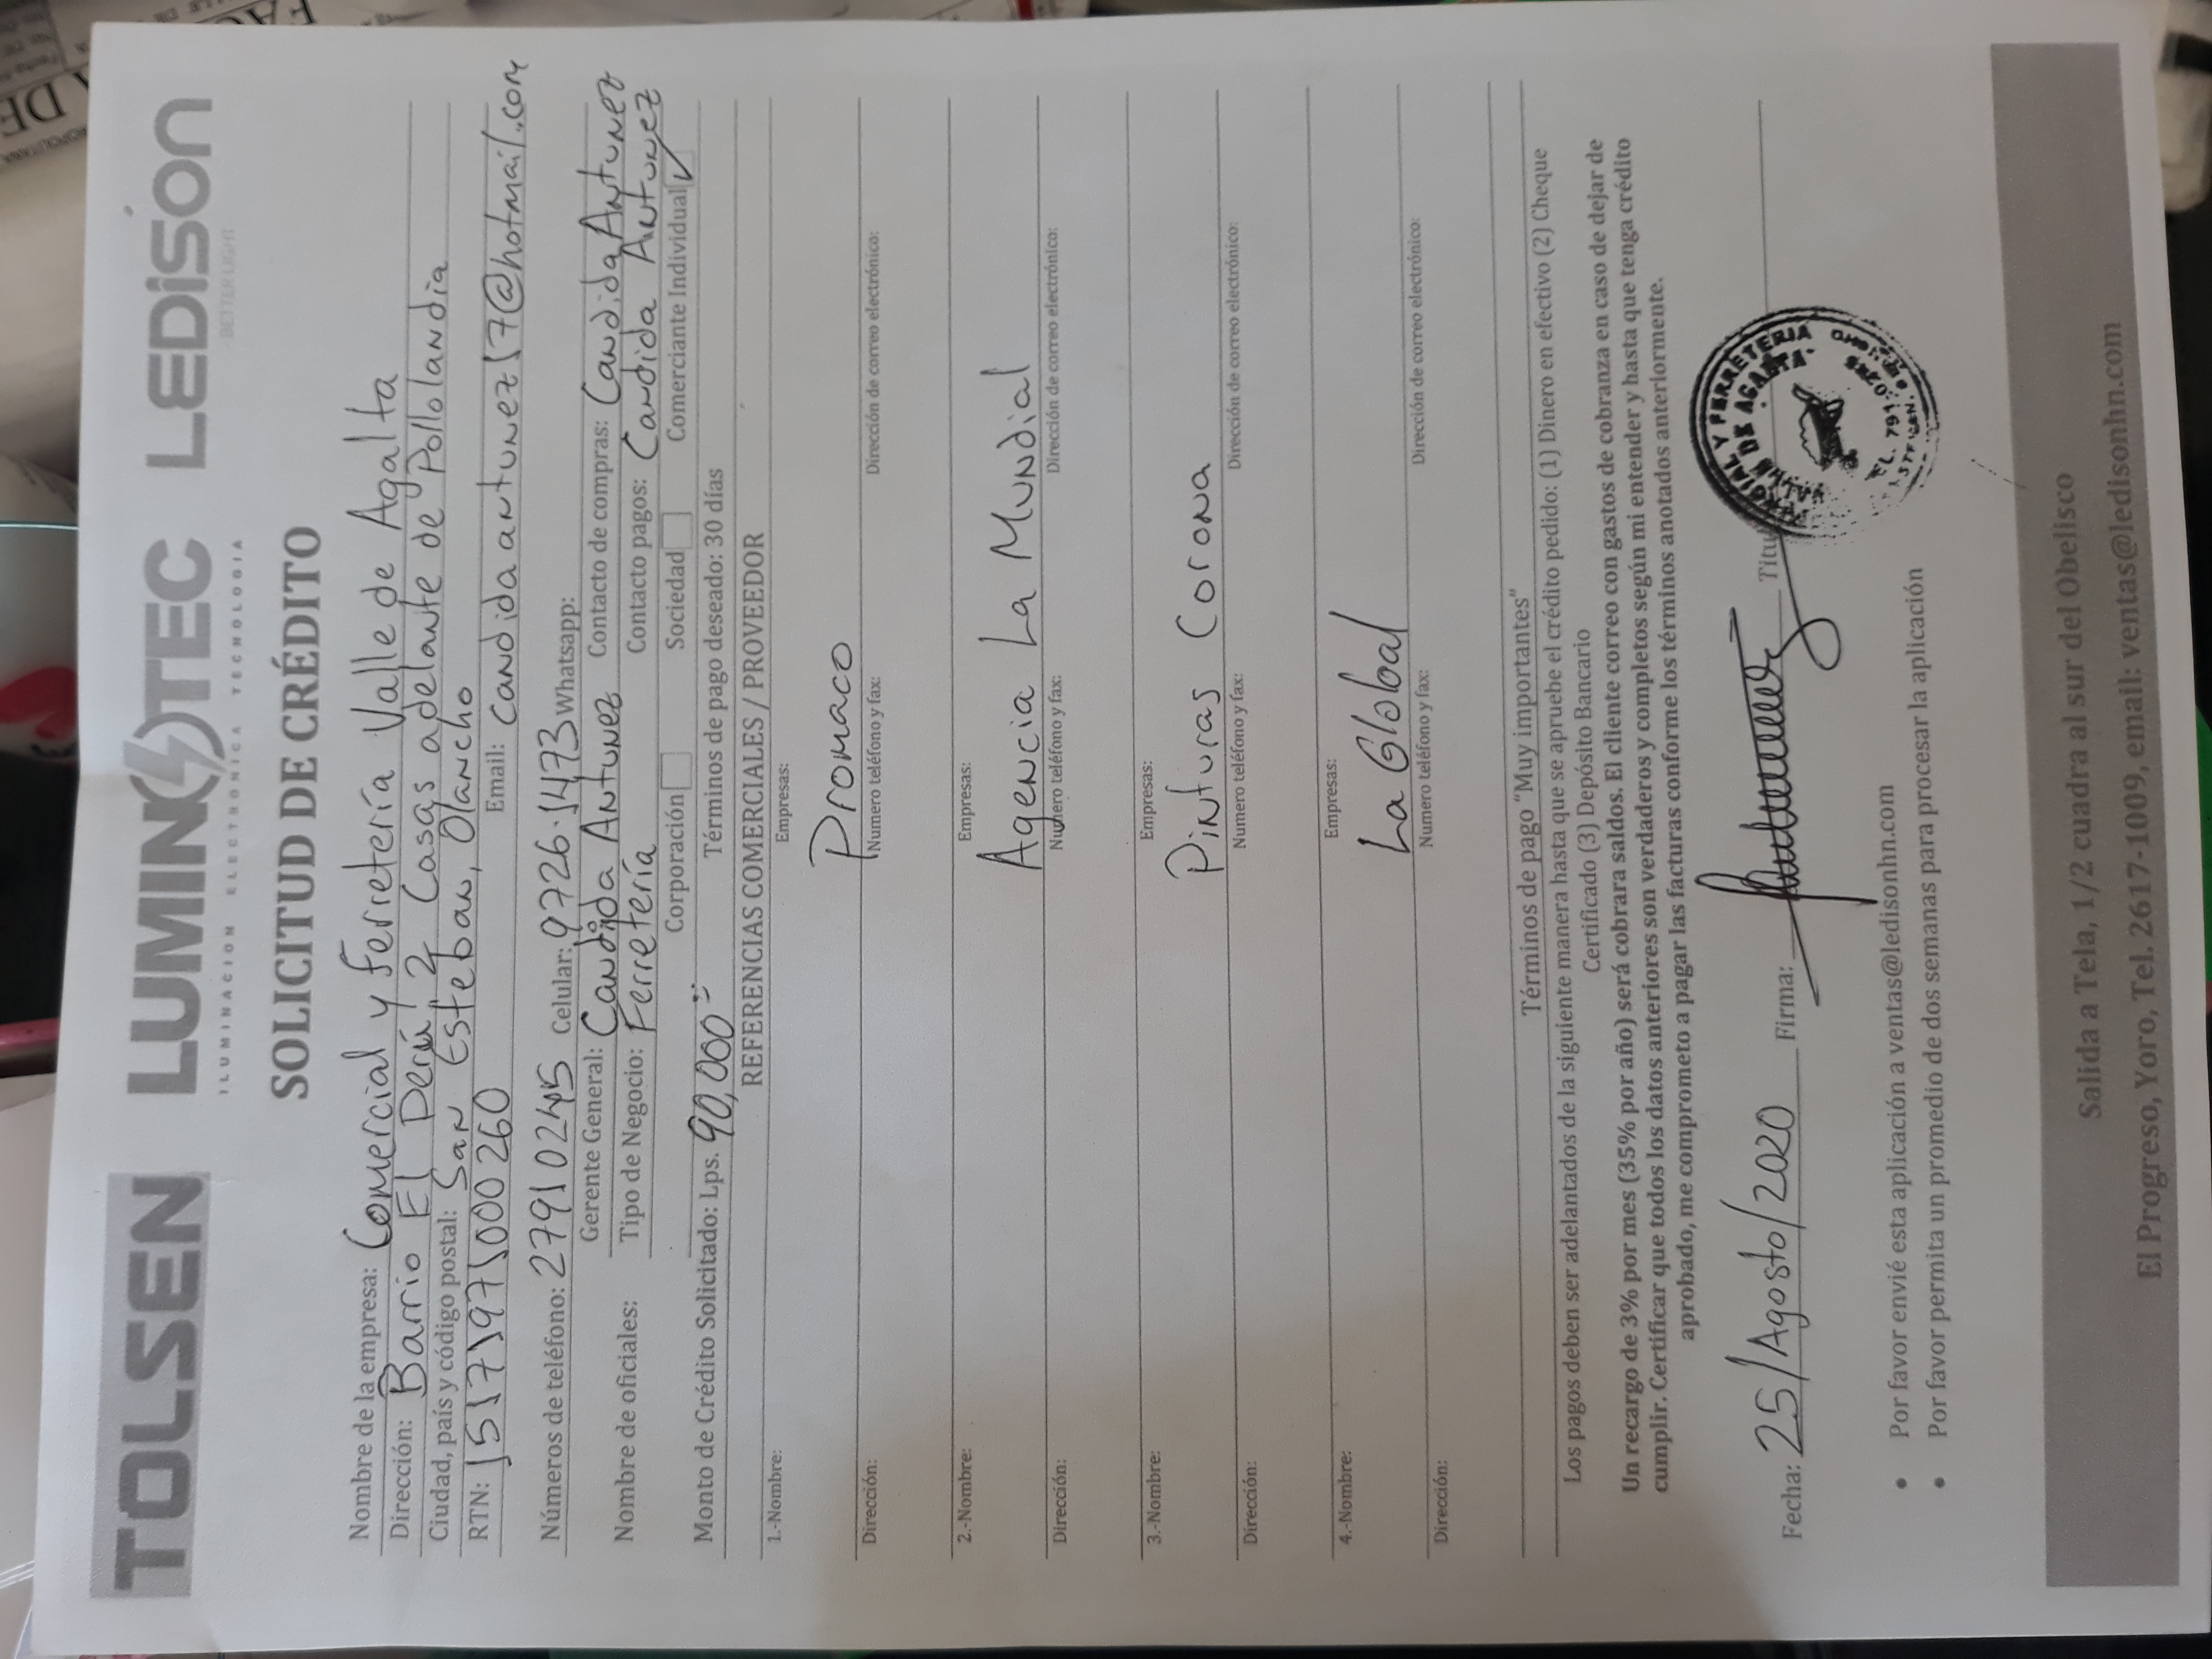 TOLSEN LUMINOTEC LEDISON
ILUMINACION ELECTRONICA TECNOLOGIA
BETTER LIGHT
SOLICITUD DE CRÉDITO
Nombre de la empresa: Comercial y Ferretería Valle de Agalta
Dirección: Barrio El Perú, 2 Casas adelante de Pollolandia
Ciudad, país y código postal: San Esteban, Olancho
RTN: 15171971000260 Email: candidaantunez17@hotmail.com
Números de teléfono: 27910245 Celular: 9726-1473 Whatsapp:
Gerente General: Candida Antunez Contacto de compras: Candida Antunez
Nombre de oficiales: Tipo de Negocio: Ferretería Contacto pagos: Candida Antunez
Corporación Sociedad Comerciante Individual ✓
Monto de Crédito Solicitado: Lps. 90,000 Términos de pago deseado: 30 días
REFERENCIAS COMERCIALES / PROVEEDOR
1.-Nombre: Empresas:
Promaco
Dirección: Numero teléfono y fax: Dirección de correo electrónico:
2.-Nombre: Empresas:
Agencia La Mundial
Dirección: Numero teléfono y fax: Dirección de correo electrónico:
3.-Nombre: Empresas:
Pinturas Corona
Dirección: Numero teléfono y fax: Dirección de correo electrónico:
4.-Nombre: Empresas:
La Global
Dirección: Numero teléfono y fax: Dirección de correo electrónico:
Términos de pago “Muy importantes”
Los pagos deben ser adelantados de la siguiente manera hasta que se apruebe el crédito pedido: (1) Dinero en efectivo (2) Cheque
Certificado (3) Depósito Bancario
Un recargo de 3% por mes (35% por año) será cobrara saldos. El cliente correo con gastos de cobranza en caso de dejar de
cumplir. Certificar que todos los datos anteriores son verdaderos y completos según mi entender y hasta que tenga crédito
aprobado, me comprometo a pagar las facturas conforme los términos anotados anteriormente.
Fecha: 25/Agosto/2020 Firma: Titu
Y FERRETERIA
VALLE DE AGALTA
• Por favor envié esta aplicación a ventas@ledisonhn.com
• Por favor permita un promedio de dos semanas para procesar la aplicación
Salida a Tela, 1/2 cuadra al sur del Obelisco
El Progreso, Yoro, Tel. 2617-1009, email: ventas@ledisonhn.com